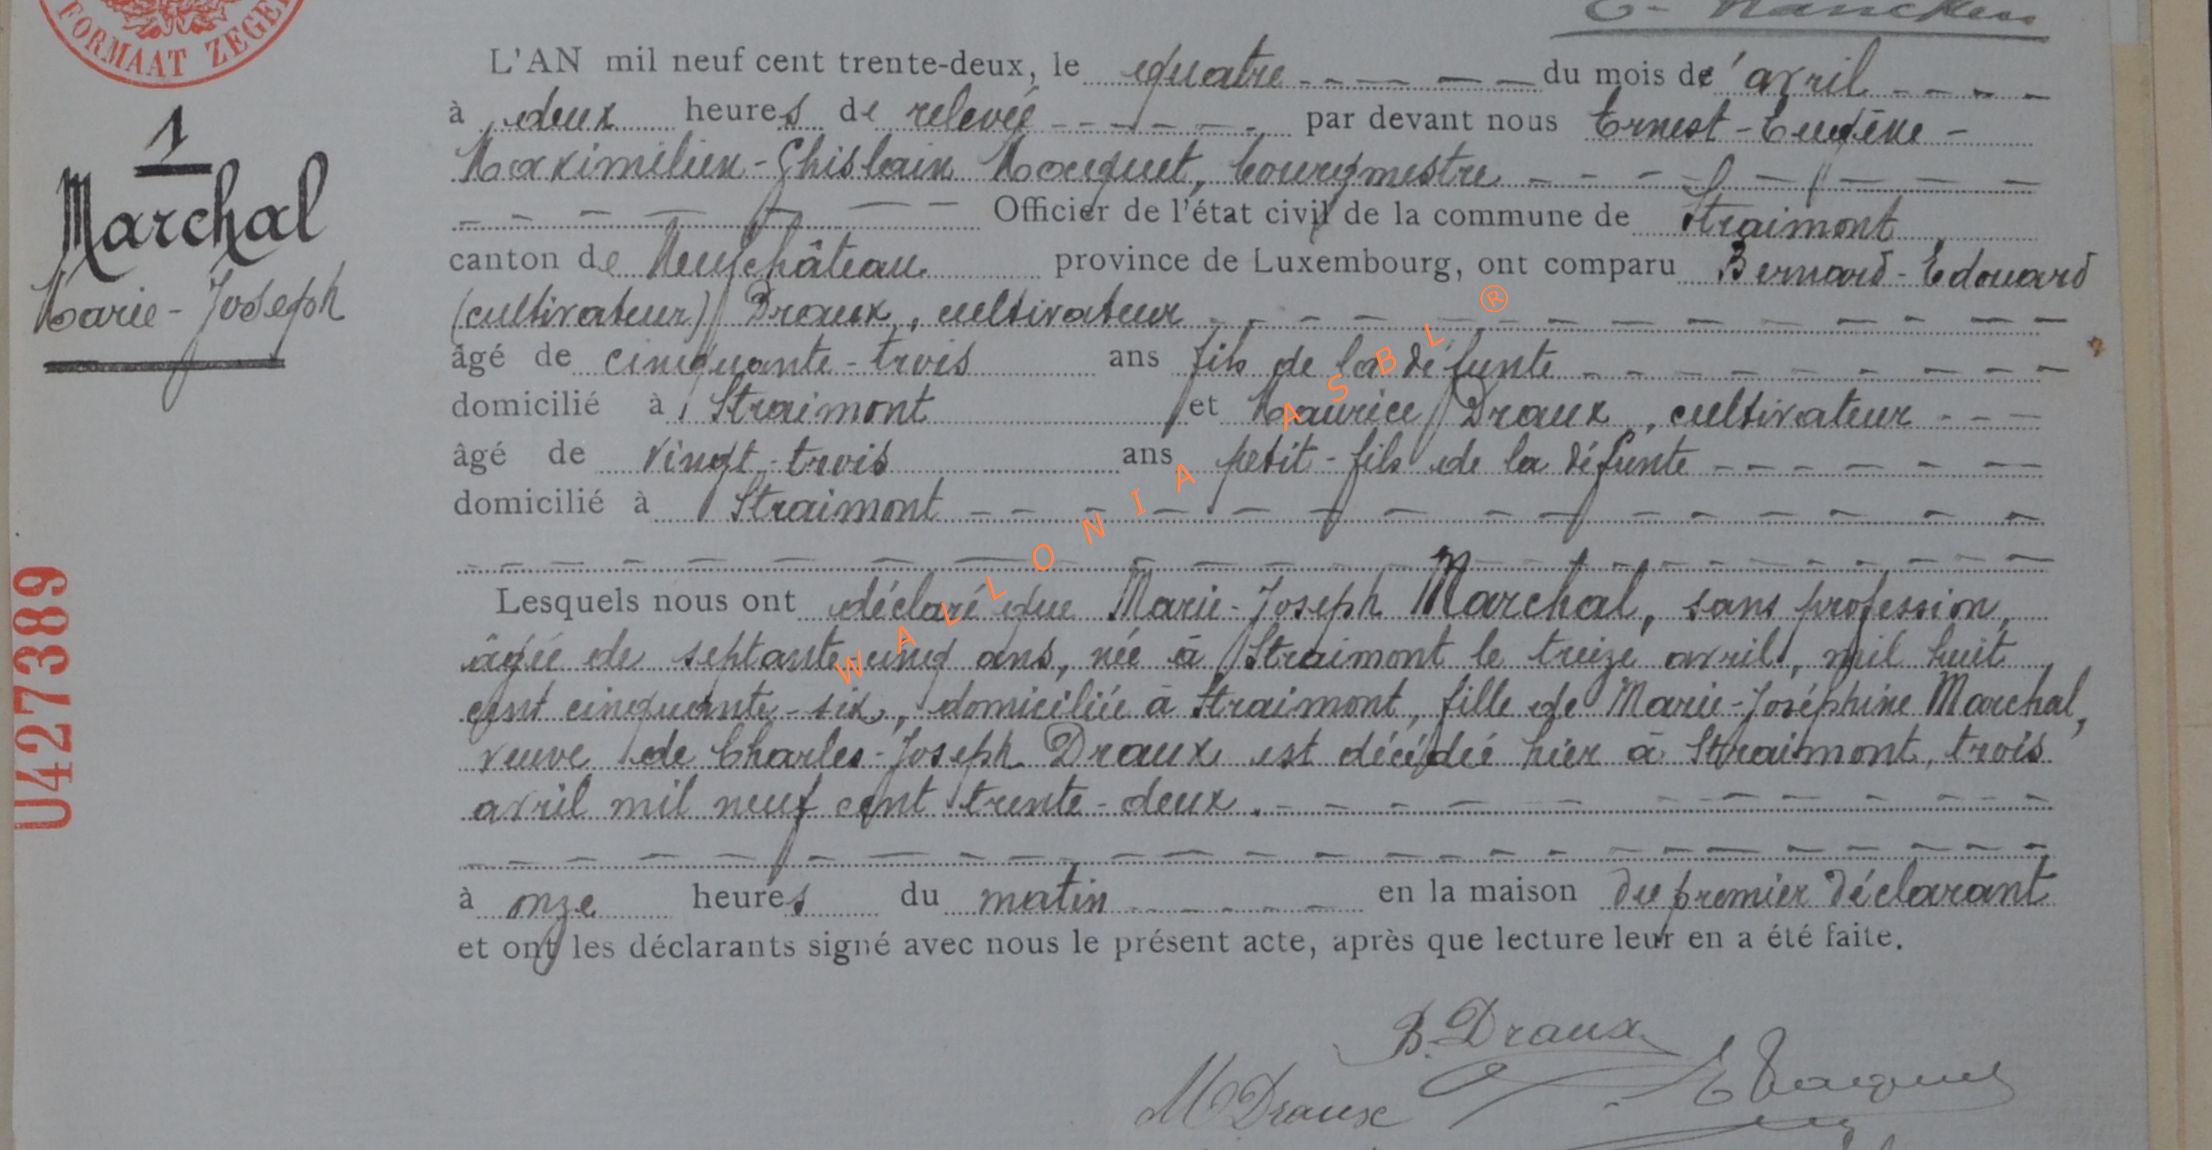 FORMAAT ZEGEL
L'AN mil neuf cent trente-deux, le quatre du mois d'avril
à deux heures de relevée par devant nous Ernest-Eugène-
Maximilien-Ghislain Macquet, bourgmestre
Officier de l'état civil de la commune de Straimont
canton de Neufchâteau province de Luxembourg, ont comparu Bernard-Edouard
(cultivateur) Draux, cultivateur
âgé de cinquante-trois ans fils de la défunte
domicilié à Straimont et Maurice Draux, cultivateur
âgé de vingt-trois ans petit-fils de la défunte
domicilié à Straimont
Lesquels nous ont déclaré que Marie-Joseph Marchal, sans profession,
âgée de septante-cinq ans, née à Straimont le treize avril, mil huit
cent cinquante-six, domiciliée à Straimont, fille de Marie-Joséphine Marchal,
veuve de Charles-Joseph Draux est décédée hier à Straimont, trois
avril mil neuf cent trente-deux.
à onze heures du matin en la maison du premier déclarant
et ont les déclarants signé avec nous le présent acte, après que lecture leur en a été faite.
B. Draux
M Draux
1
Marchal
Marie-Joseph
U427389
WALLONIA ASBL ®